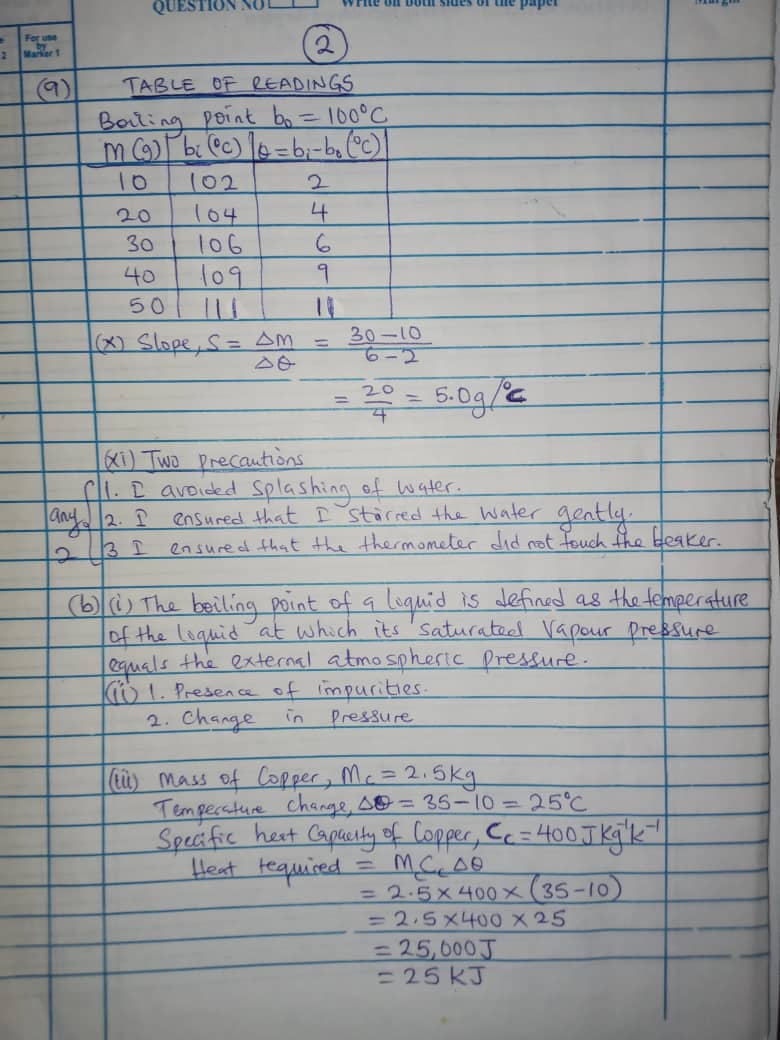 QUESTION NO
Write on both sides of the paper
For use
by
Marker 1
2
(2)
(a) TABLE OF READINGS
Boiling point b₀ = 100°C
m(g) b₁(°C) θ=b₁-b₀(°C)
10 102 2
20 104 4
30 106 6
40 109 9
50 111 11
(x) Slope, S = Δm/Δθ = 30-10/6-2
= 20/4 = 5.0g/°C
(xi) Two precautions
1. I avoided splashing of water.
any 2. I ensured that I stirred the water gently.
2 3 I ensured that the thermometer did not touch the beaker.
(b) (i) The boiling point of a liquid is defined as the temperature
of the liquid at which its saturated vapour pressure
equals the external atmospheric pressure.
(ii) 1. Presence of impurities.
2. Change in pressure
(iii) Mass of Copper, Mc = 2.5kg
Temperature change, Δθ = 35-10 = 25°C
Specific heat Capacity of Copper, Cc = 400Jkg⁻¹k⁻¹
Heat required = McCcΔθ
= 2.5×400×(35-10)
= 2.5×400×25
= 25,000J
= 25KJ